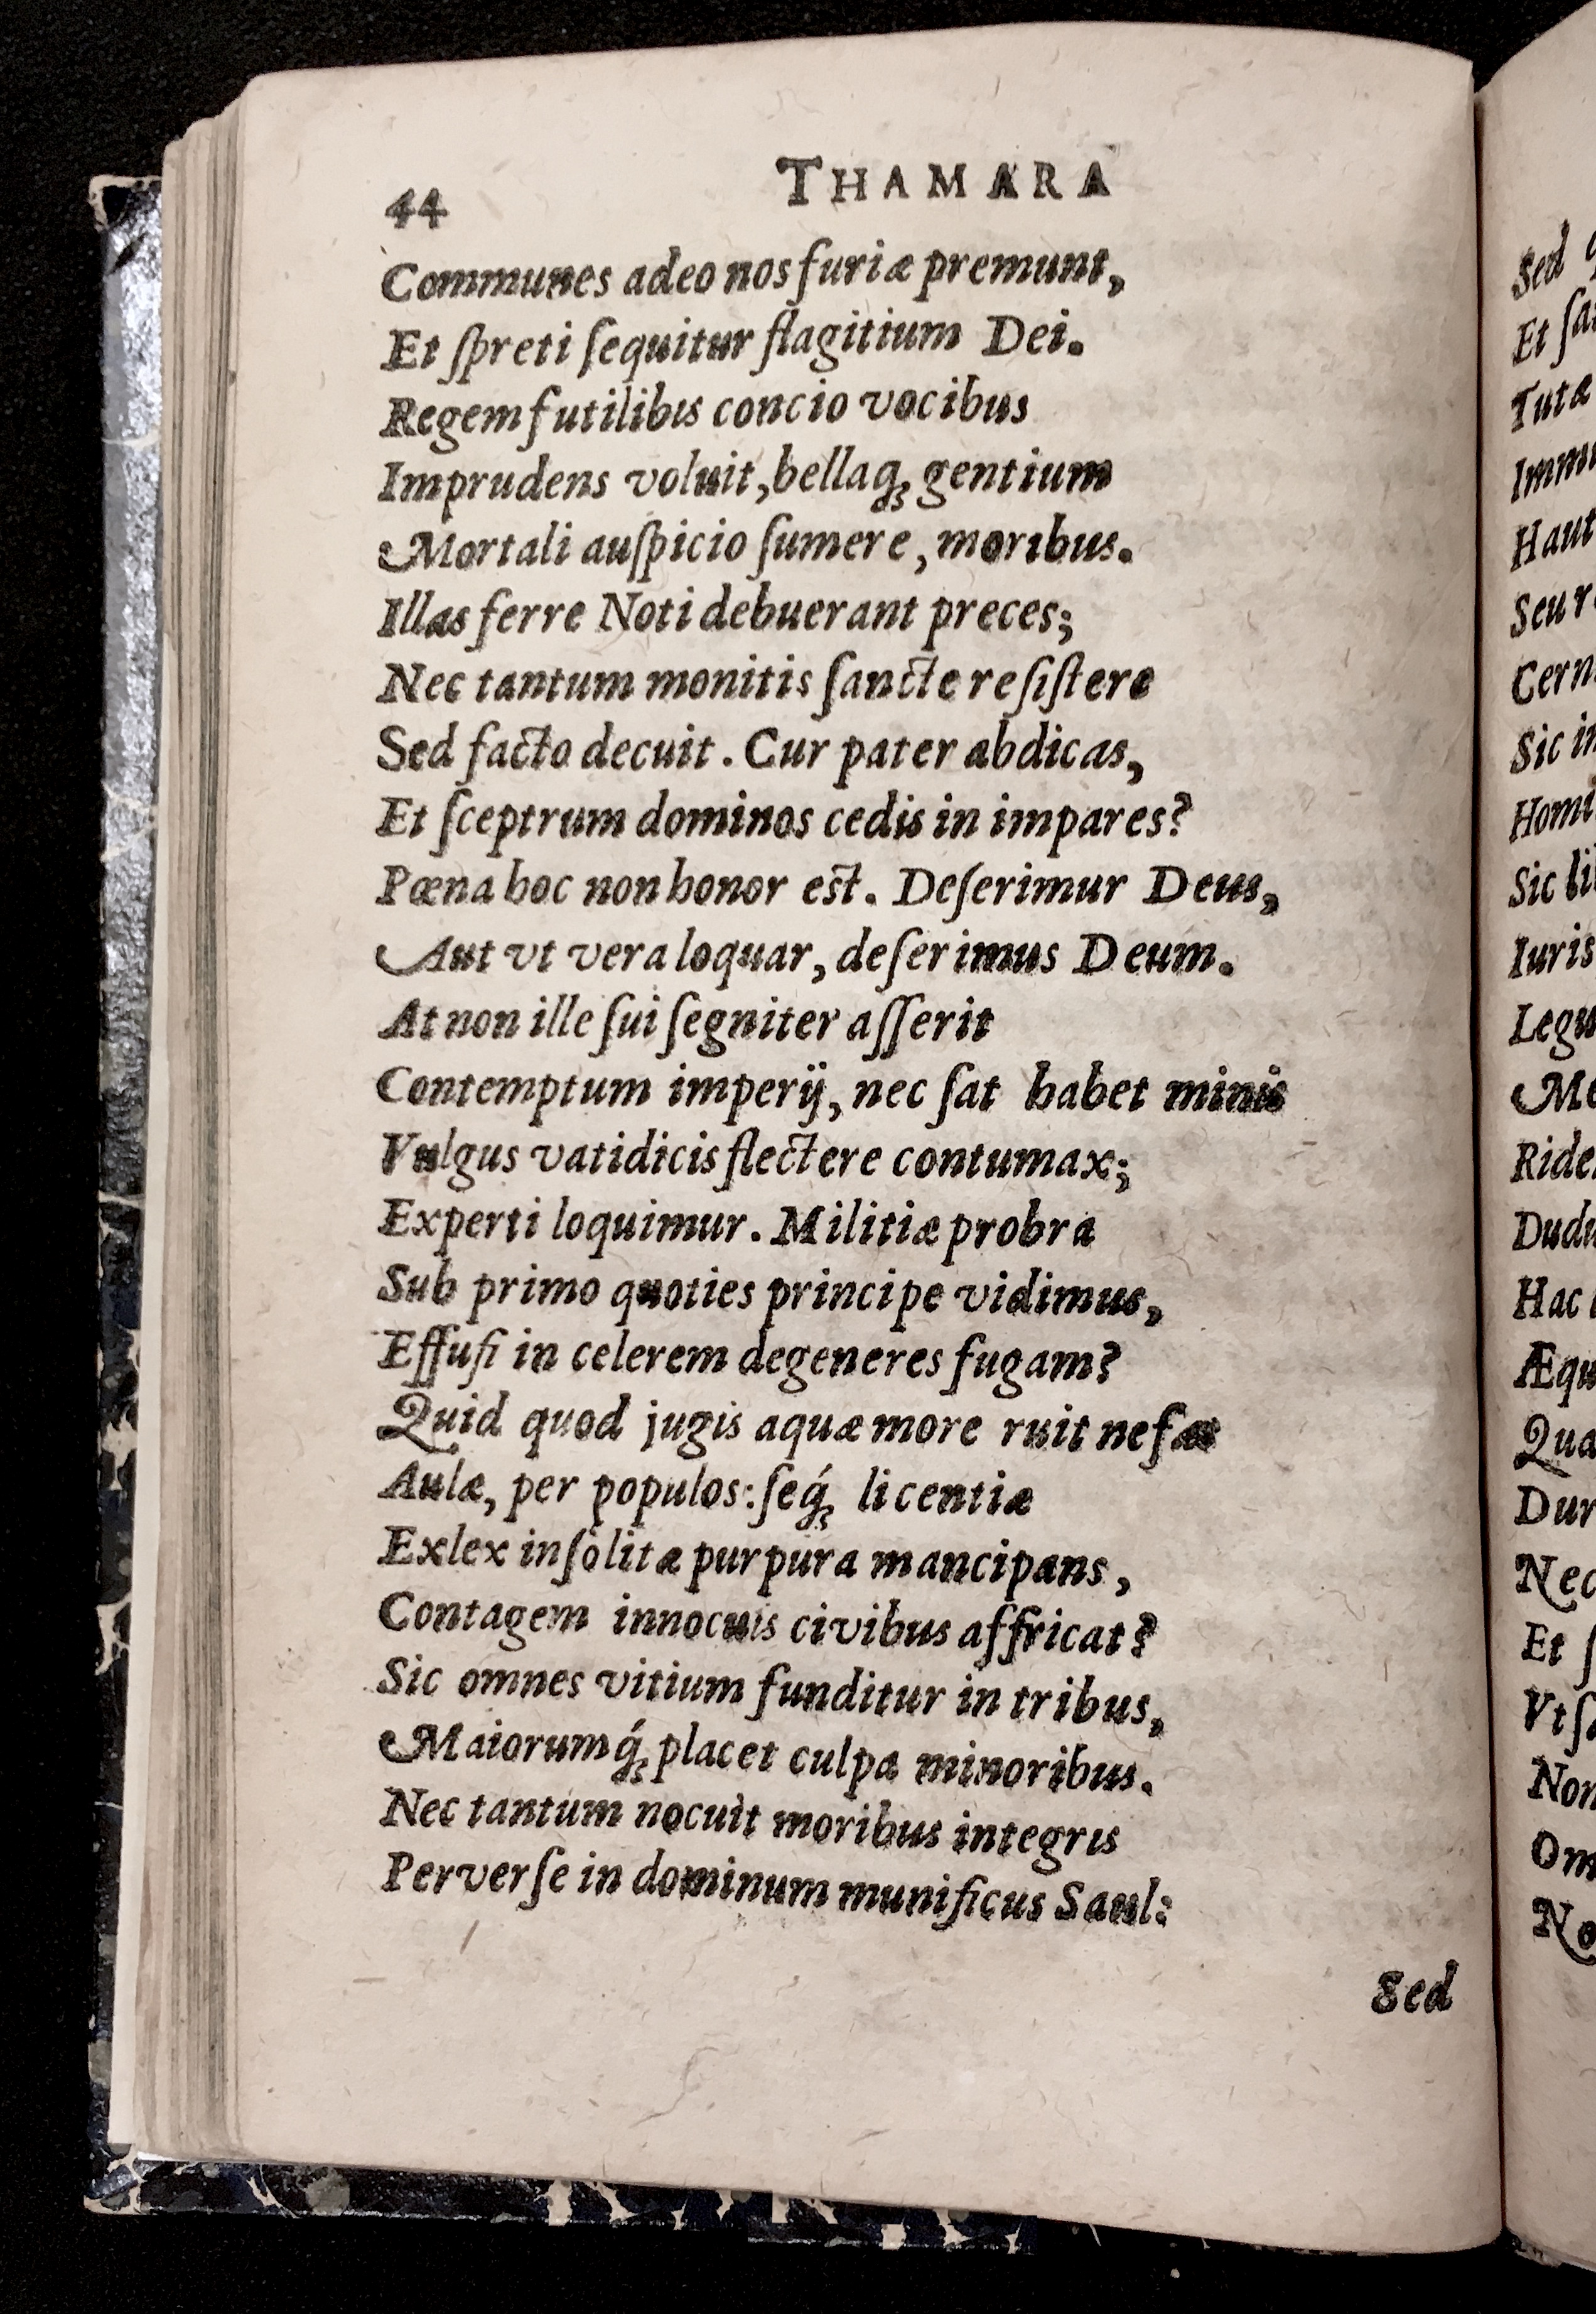 44
THAMARA
Communes adeo nos furiæ premunt,
Et ſpreti ſequitur flagitium Dei.
Regem futilibus concio vocibus
Imprudens voluit, bellaq; gentium
Mortali auſpicio ſumere, moribus.
Illas ferre Noti debuerant preces;
Nec tantum monitis ſancte reſiſtere
Sed facto decuit. Cur pater abdicas,
Et ſceptrum dominos cedis in impares?
Pœna hoc non honor est. Deſerimur Deus,
Aut vt vera loquar, deſerimus Deum.
At non ille ſui ſegniter aſſerit
Contemptum imperij, nec ſat habet minis
Vulgus vatidicis flectere contumax;
Experti loquimur. Militiæ probra
Sub primo quoties principe vidimus,
Effuſi in celerem degeneres fugam?
Quid quod jugis aquæ more ruit nefas
Aulæ, per populos: ſeq́; licentiæ
Exlex inſolitæ purpura mancipans,
Contagem innocuis civibus affricat?
Sic omnes vitium funditur in tribus,
Maiorumq́; placet culpa minoribus.
Nec tantum nocuit moribus integris
Perverſe in dominum munificus Saul:
Sed
Sed
Et
Tutæ
Haut
Seu
Sic
Sic
Iuris
Hac
Nec
Et